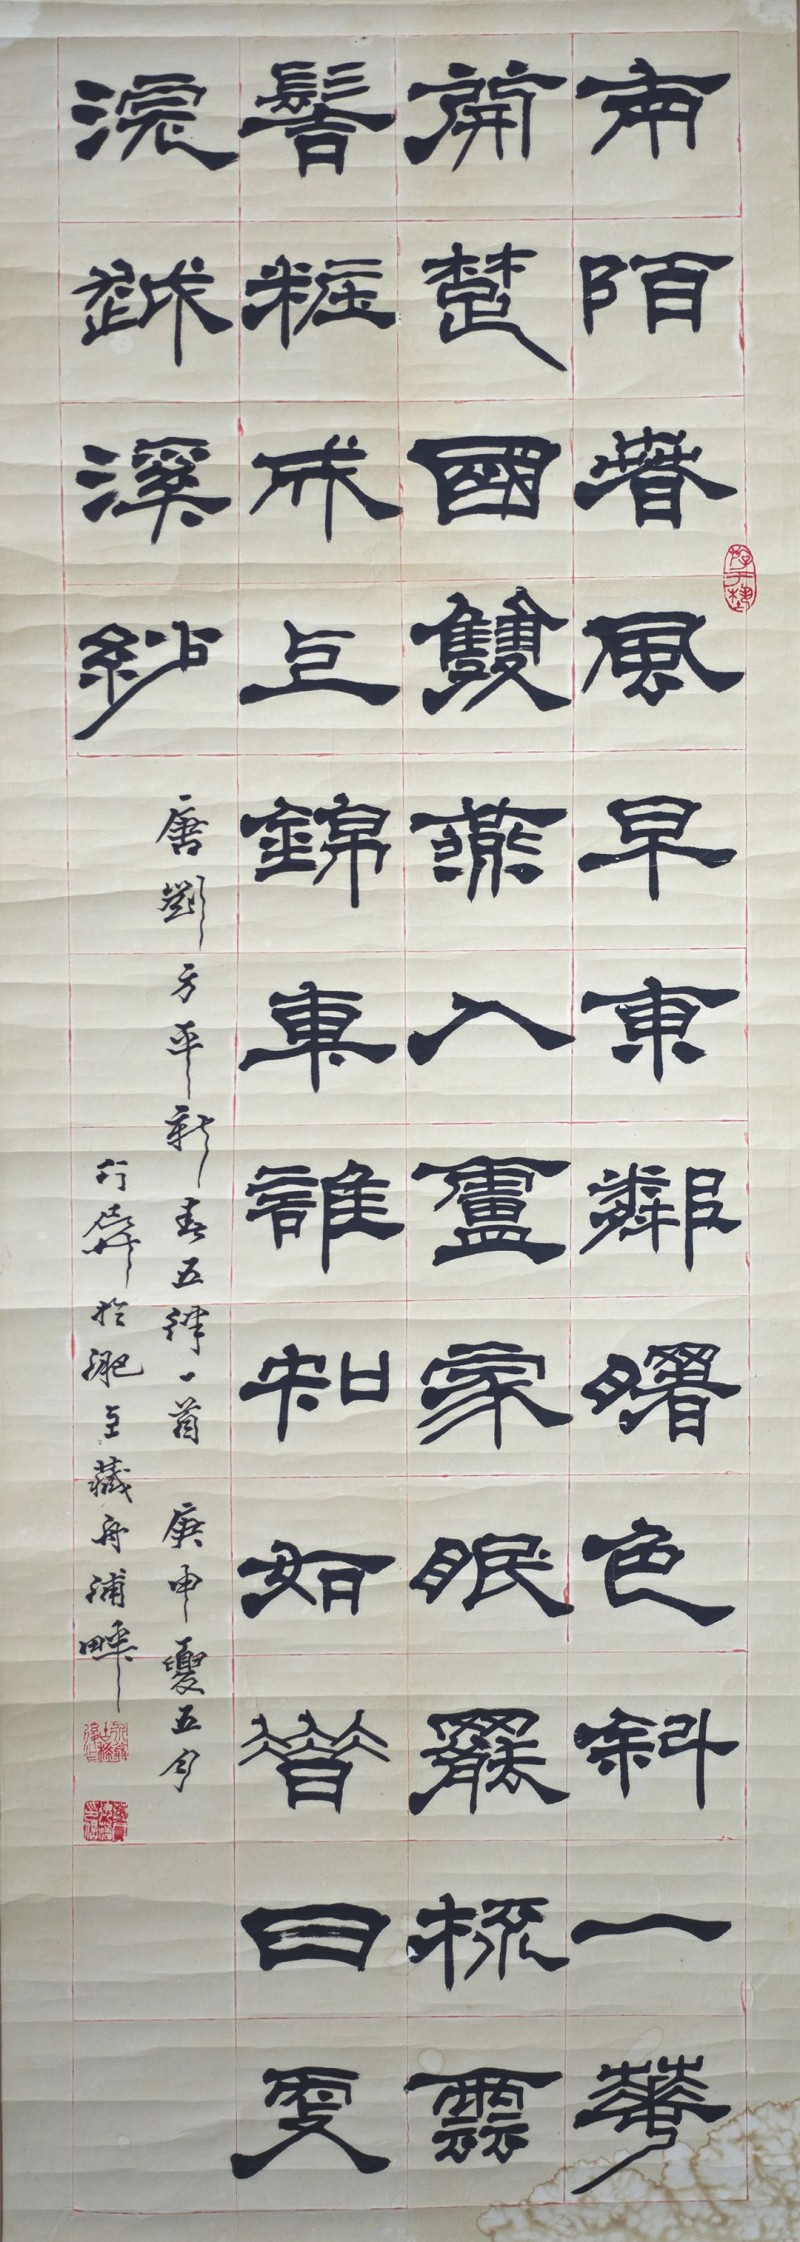 南陌春風早東鄰曙色斜一華
開楚國雙燕入盧家眠罷梳雲
髻粧成上錦車誰知如昔日更
浣越溪紗
唐劉方平新春五律一首 庚申夏五月
介屏於淝上藏舟浦畔